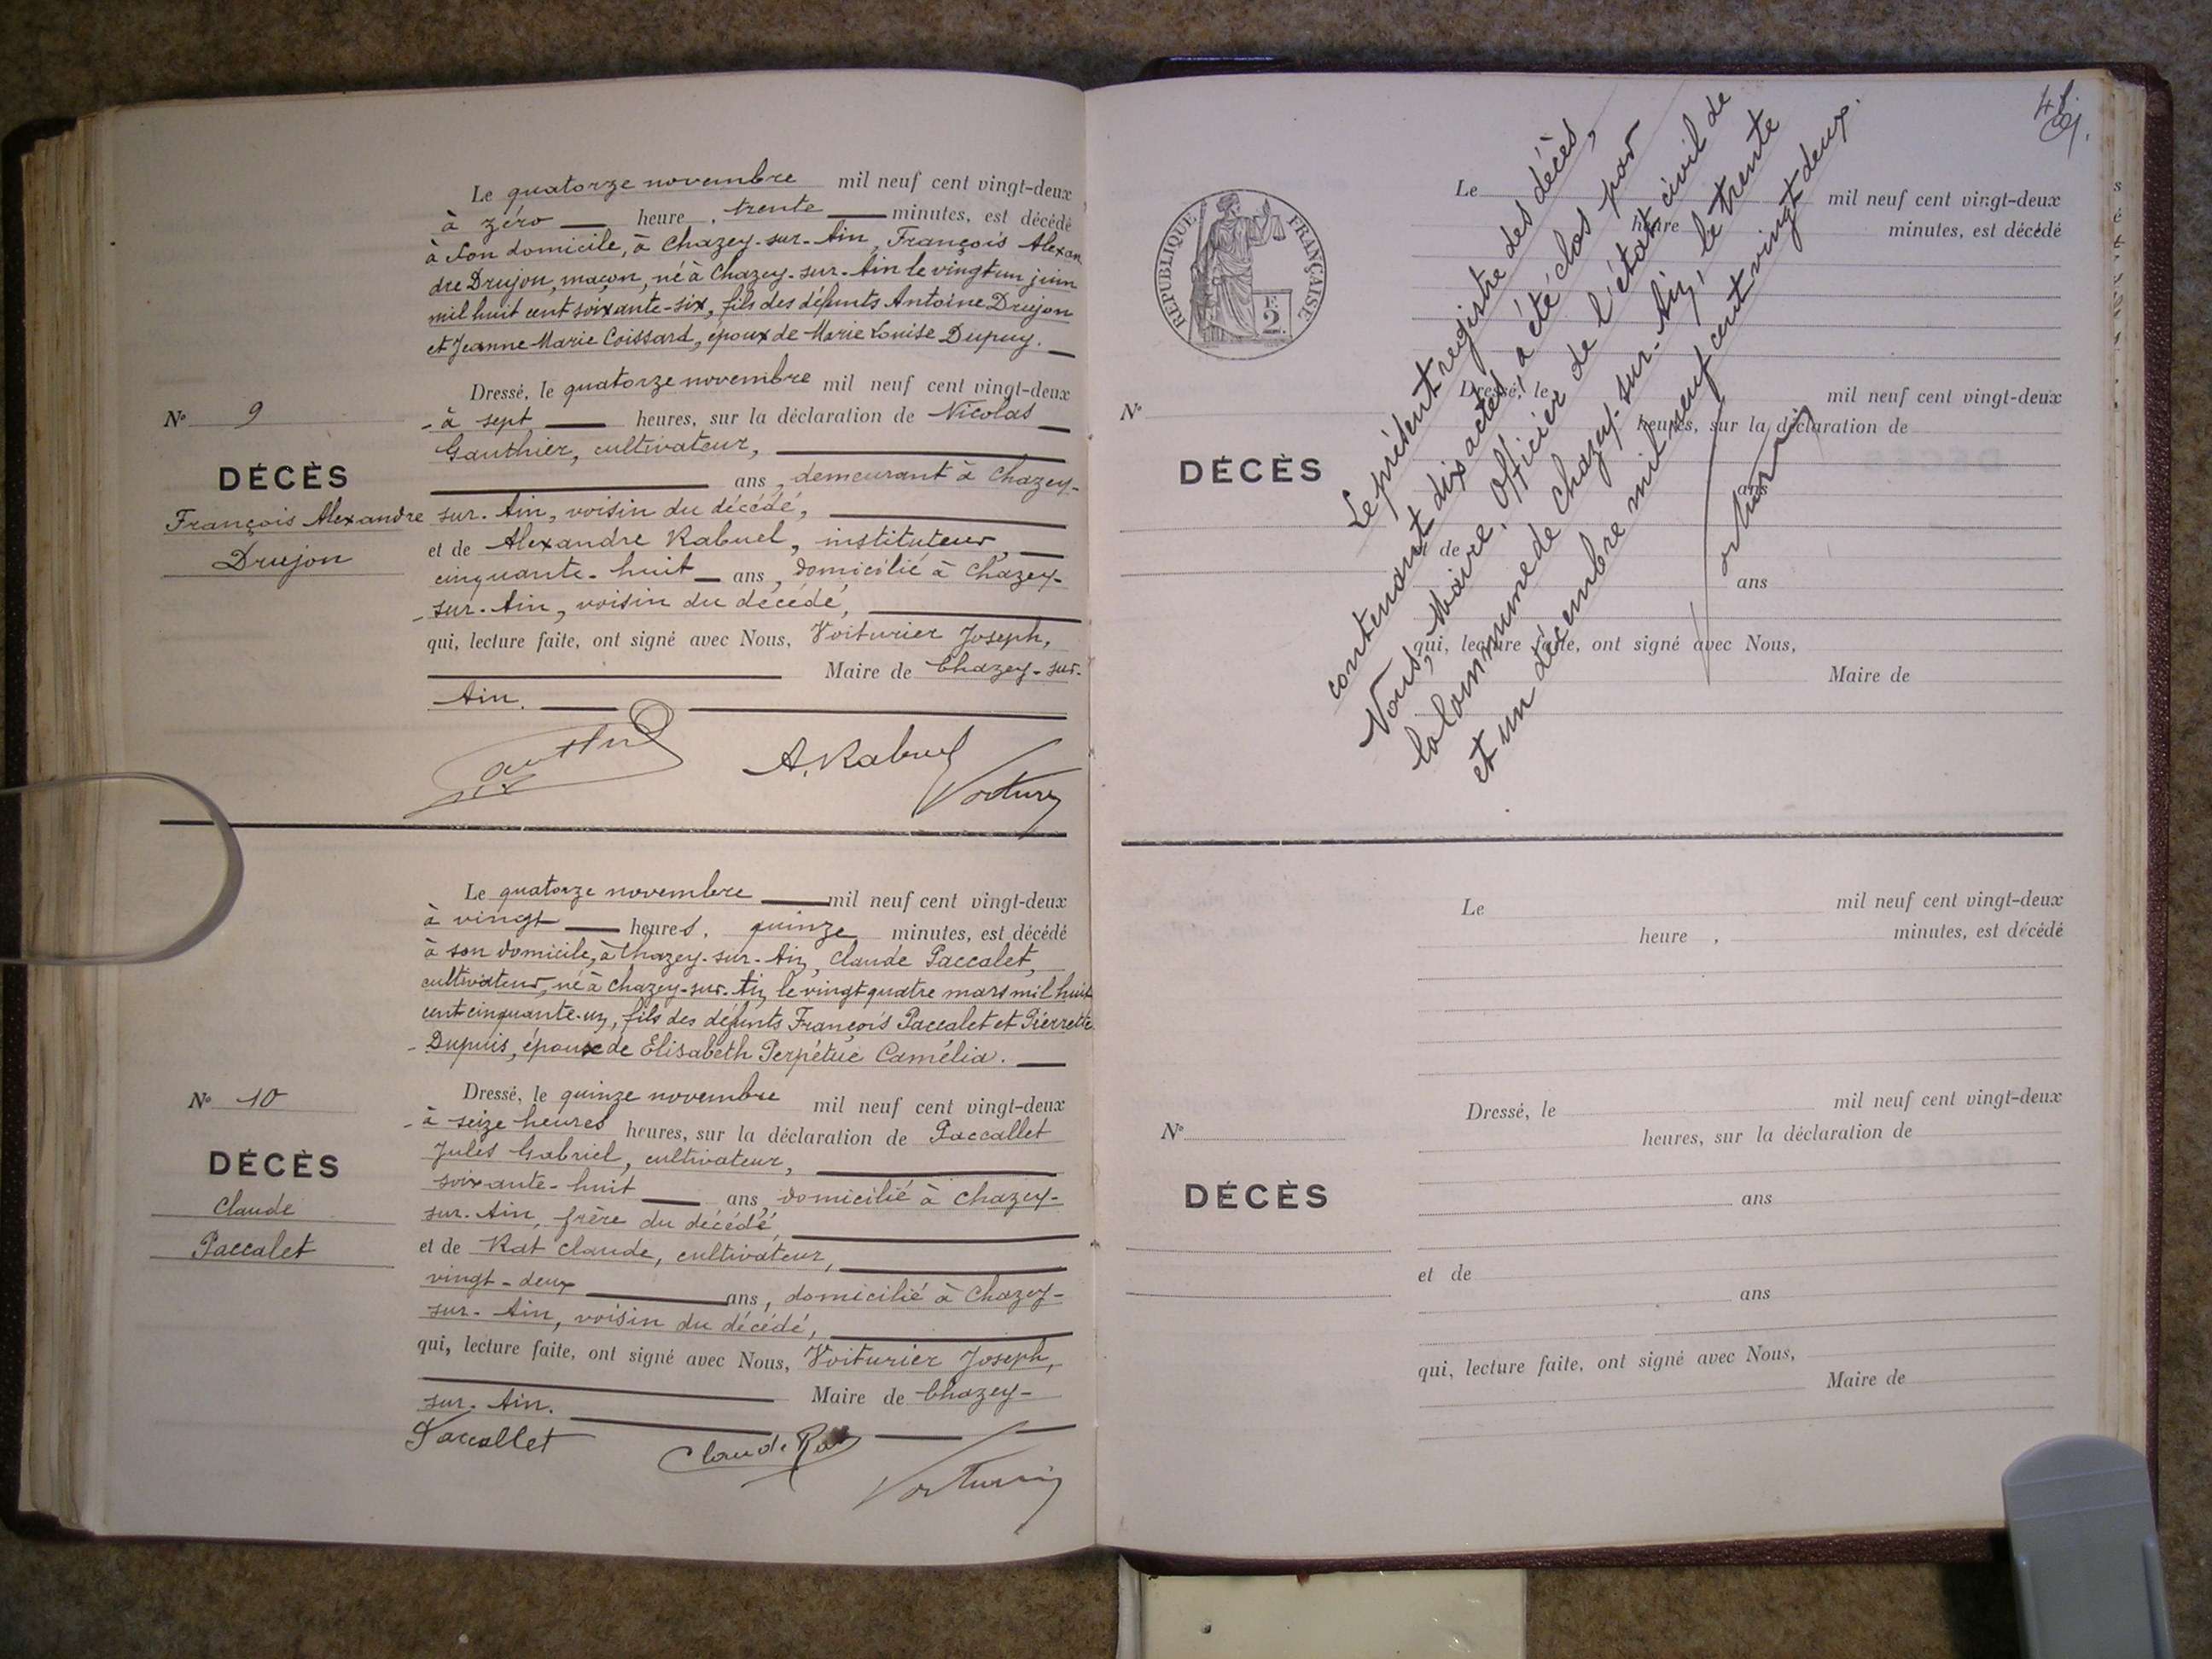 Le quatorze novembre mil neuf cent vingt-deux
à zéro heure, trente minutes, est décédé
à son domicile, à Chazey-sur-Ain, François Alexan
dre Drujon, maçon, né à Chazey-sur-Ain le vingt un juin
mil huit cent soixante-six, fils des défunts Antoine Drujon
et Jeanne Marie Coissard, époux de Marie Louise Dupuy.
Dressé, le quatorze novembre mil neuf cent vingt-deux
à sept heures, sur la déclaration de Nicolas
Gauthier, cultivateur,
ans, demeurant à Chazey-
sur-Ain, voisin du décédé,
et de Alexandre Rabuel, instituteur,
cinquante-huit ans, domicilié à Chazey-
sur-Ain, voisin du décédé,
qui, lecture faite, ont signé avec Nous, Voiturier Joseph,
Maire de Chazey-sur-
Ain.
N° 9
DÉCÈS
François Alexandre
Drujon
A. Rabuel
Le quatorze novembre mil neuf cent vingt-deux
à vingt heures, quinze minutes, est décédé
à son domicile, à Chazey-sur-Ain, Claude Paccalet,
cultivateur, né à Chazey-sur-Ain, le vingt quatre mars mil huit
cent cinquante-un, fils des défunts François Paccalet et Pierrette
Dupuis, époux de Elisabeth Perpétue Camélia.
Dressé, le quinze novembre mil neuf cent vingt-deux
à seize heures heures, sur la déclaration de Paccallet
Jules Gabriel, cultivateur,
soixante-huit ans, domicilié à Chazey-
sur-Ain, frère du décédé,
et de Rat Claude, cultivateur,
vingt-deux ans, domicilié à Chazey-
sur-Ain, voisin du décédé,
qui, lecture faite, ont signé avec Nous, Voiturier Joseph,
Maire de Chazey-
sur-Ain.
N° 10
DÉCÈS
Claude
Paccalet
Paccallet
Claude Rat
Voiturier
RÉPUBLIQUE FRANÇAISE
F.
2
Le présent registre des décès,
contenant dix actes, a été clos par
Nous, Maire, Officier de l'état civil de
la Commune de Chazey-sur-Ain, le trente
et un décembre mil neuf cent vingt deux.
Le mil neuf cent vingt-deux
heure minutes, est décédé
Dressé, le mil neuf cent vingt-deux
heures, sur la déclaration de
ans
et de
ans
qui, lecture faite, ont signé avec Nous,
Maire de
N°
DÉCÈS
Le mil neuf cent vingt-deux
heure , minutes, est décédé
Dressé, le mil neuf cent vingt-deux
heures, sur la déclaration de
ans
et de
ans
qui, lecture faite, ont signé avec Nous,
Maire de
N°
DÉCÈS